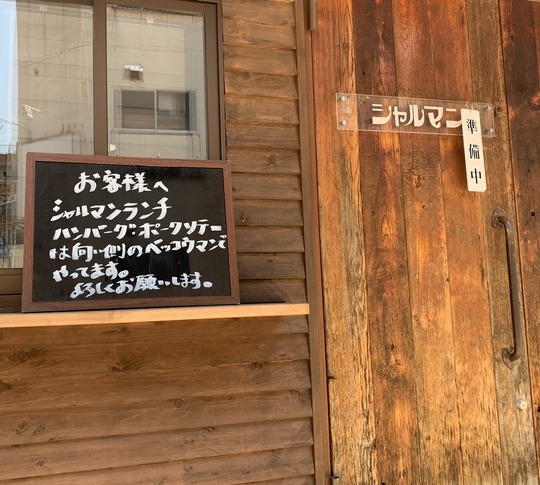 お客様へ
シャルマンランチ
ハンバーグ:ポークソテー
は向い側のベッコウマンで
やってます。
よろしくお願いします。
シャルマン
準備中